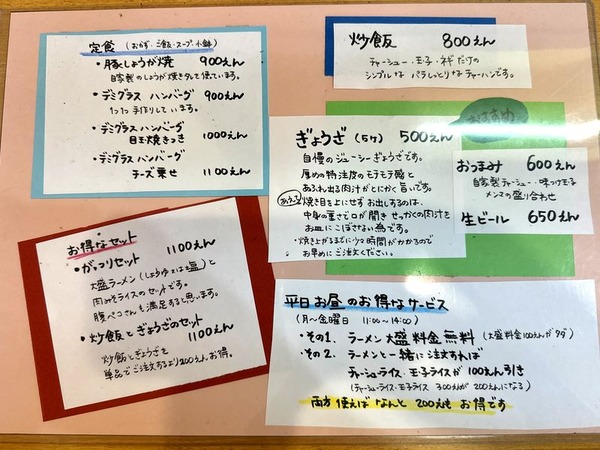 定食 (おかず・ご飯・スープ・小鉢)
・豚しょうが焼 900えん
自家製のしょうが焼きタレで使ています。
・デミグラス ハンバーグ 900えん
1つ1つ 手作りしています。
・デミグラス ハンバーグ
目玉焼きつき 1000えん
・デミグラス ハンバーグ
チーズ乗せ 1100えん
炒飯 800えん
チャーシュー・玉子・ネギだけの
シンプルな パラしっとりなチャーハンです。
おすすめ
ぎょうざ (5ケ) 500えん
自慢のジューシーぎょうざです。
厚めの特注皮のモチモチ感と
あふれ出る肉汁がとにかく旨いです。
あえて 焼き目をよこにせず お出しするのは、
中身の重さで口が開き せっかくの肉汁を
お皿にこぼさない為です。
・焼き上がるまでに少々時間がかかるので
お早めにご注文ください。
おつまみ 600えん
自家製チャーシュー・味つけ玉子
メンマの盛り合わせ
生ビール 650えん
お得なセット
・がっつりセット 1100えん
大盛ラーメン (しょうゆ又は塩) と
肉みそライスのセットです。
腹ペコさんも満足すると思います。
・炒飯とぎょうざのセット
1100えん
炒飯とぎょうざを
単品でご注文するより200えんお得。
平日お昼のお得なサービス
(月〜金曜日 11:00〜14:00)
・その1. ラーメン大盛料金無料 (大盛料金100えんがタダ)
・その2. ラーメンと一緒に注文すれば
チャーシューライス・玉子ライスが100えん引き
(チャーシューライス・玉子ライス 300えんが 200えんになる)
両方使えばなんと 200えんも お得です